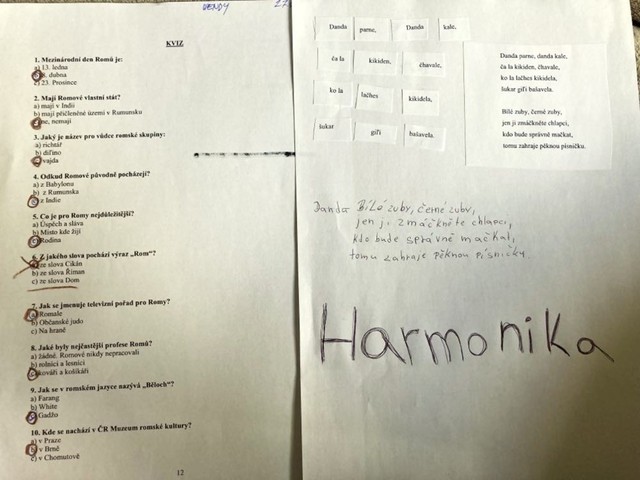 WENDY 27
KVIZ
1. Mezinárodní den Romů je:
a) 13. ledna
b) 8. dubna
c) 23. Prosince
2. Mají Romové vlastní stát?
a) mají v Indii
b) mají přičleněné území v Rumunsku
c) ne, nemají
3. Jaký je název pro vůdce romské skupiny:
a) richtář
b) diřino
c) vajda
4. Odkud Romové původně pocházejí?
a) z Babylonu
b) z Rumunska
c) z Indie
5. Co je pro Romy nejdůležitější?
a) Úspěch a sláva
b) Místo kde žijí
c) Rodina
6. Z jakého slova pochází výraz „Rom"?
a) ze slova Cikán
b) ze slova Říman
c) ze slova Dom
7. Jak se jmenuje televizní pořad pro Romy?
a) Romale
b) Občanské judo
c) Na hraně
8. Jaké byly nejčastější profese Romů?
a) žádné. Romové nikdy nepracovali
b) rolníci a lesníci
c) kováři a košíkáři
9. Jak se v romském jazyce nazývá „Běloch"?
a) Farang
b) White
c) Gadžo
10. Kde se nachází v ČR Muzeum romské kultury?
a) v Praze
b) v Brně
c) v Chomutově
12
Danda parne, Danda kale,
ča la kikiden, čhavale,
ko la lačhes kikidela,
šukar giľi bašavela.
Danda parne, danda kale,
ča la kikiden, čhavale,
ko la lačhes kikidela,
šukar giľi bašavela.
Bílé zuby, černé zuby,
jen ji zmáčkněte chlapci,
kdo bude správně mačkat,
tomu zahraje pěknou písničku.
Danda Bílé zuby, černé zuby,
jen ji zmáčkněte chlapci,
kdo bude správně mačkat,
tomu zahraje pěknou písničku.
Harmonika